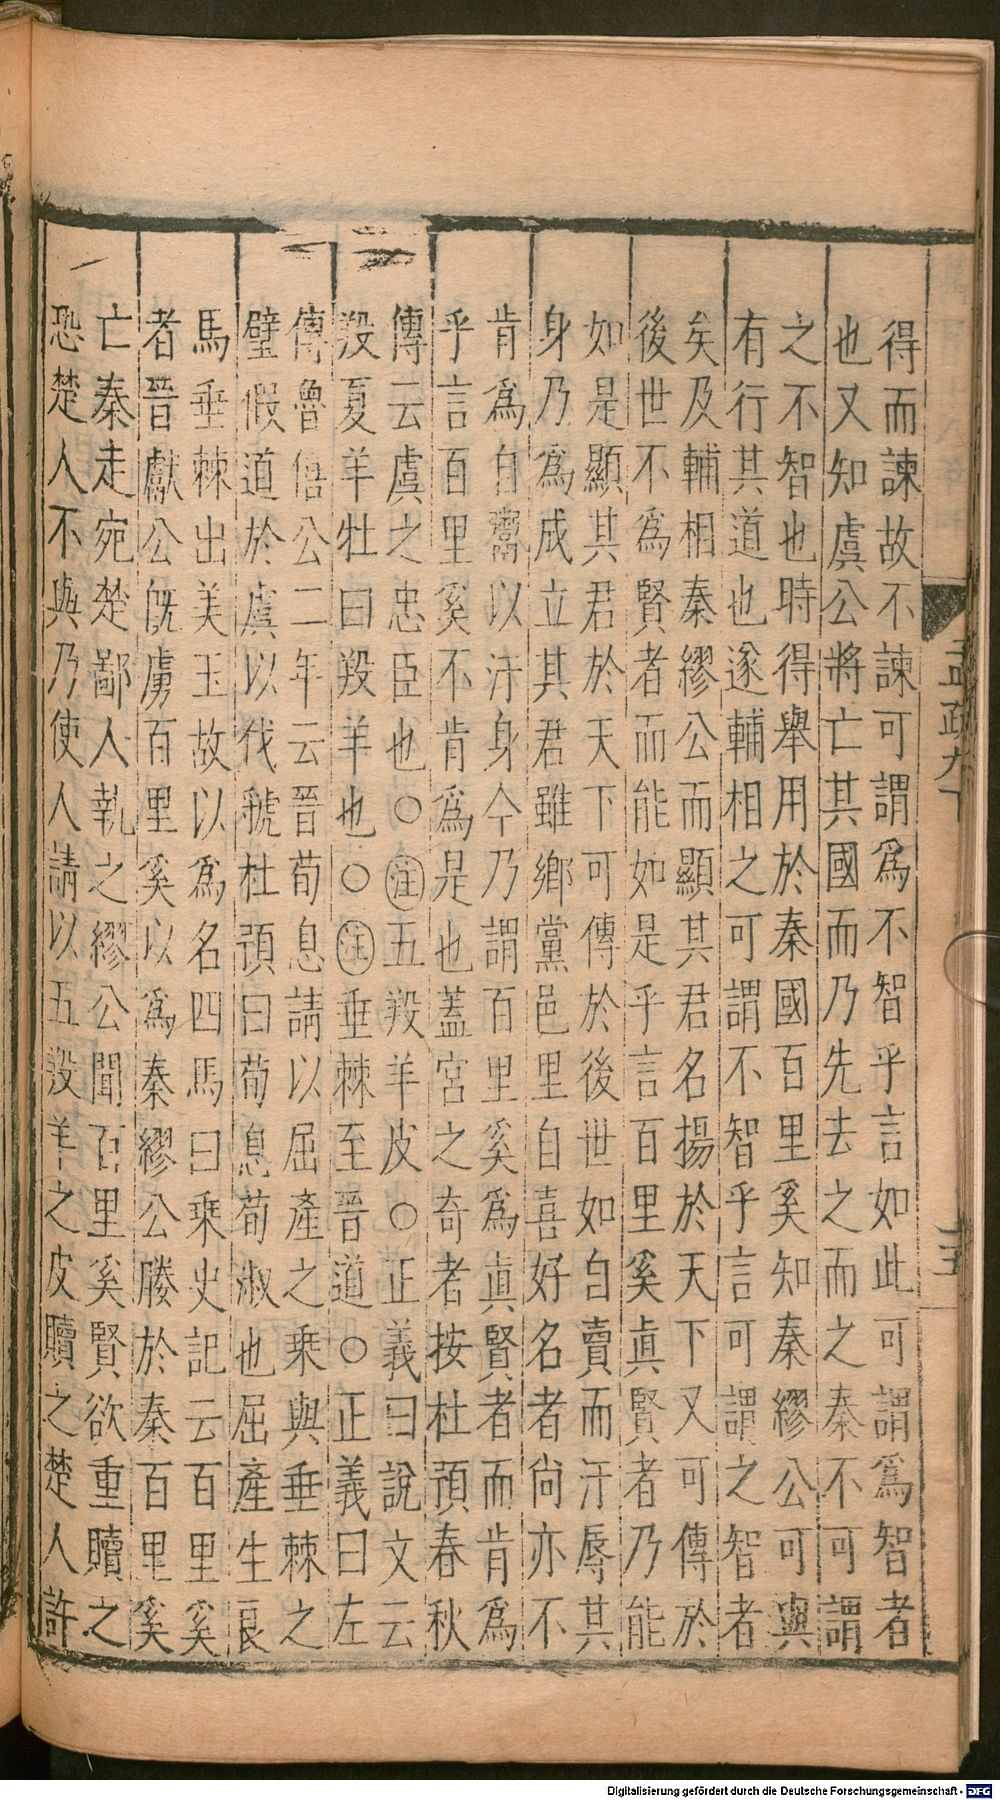 得而諫故不諫可謂爲不智乎言如此可謂爲智者
也又知虞公將亡其國而乃先去之而之秦不可謂
之不智也時得舉用於秦國百里奚知秦繆公可與
有行其道也遂輔相之可謂不智乎言可謂之智者
矣及輔相秦繆公而顯其君名揚於天下又可傳於
後世不爲賢者而能如是乎言百里奚眞賢者乃能
如是顯其君於天下可傳於後世如自賣而汙辱其
身乃爲成立其君雖鄉黨邑里自喜好名者尙亦不
肯爲自鬻以汙身今乃謂百里奚爲眞賢者而肯爲
乎言百里奚不肯爲是也蓋宮之奇者按杜預春秋
傳云虞之忠臣也○注五羖羊皮○正義曰說文云
羖夏羊牡曰羖羊也○注垂棘至晉道○正義曰左
傳魯僖公二年云晉荀息請以屈產之乘與垂棘之
璧假道於虞以伐虢杜預曰荀息荀淑也屈產生良
馬垂棘出美玉故以爲名四馬曰乘史記云百里奚
者晉獻公旣虜百里奚以爲秦繆公媵於秦百里奚
亡秦走宛楚鄙人執之繆公聞百里奚賢欲重贖之
恐楚人不與乃使人請以五羖羊之皮贖之楚人許
孟疏九下
十五
Digitalisierung gefördert durch die Deutsche Forschungsgemeinschaft - DFG